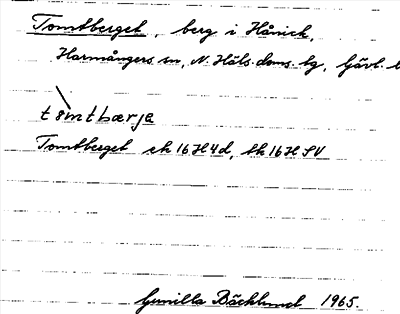 Tomtberget, berg i Hånick,
Harmångers sn, N. Häls. doms. bg, Gävl. l
Tomtberget ek 16H4d, tk 16H SV
Gunilla Bäcklund 1965.